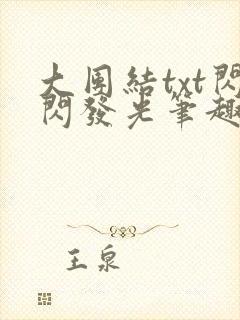 大團結txt閃
閃發光筆趣
王泉